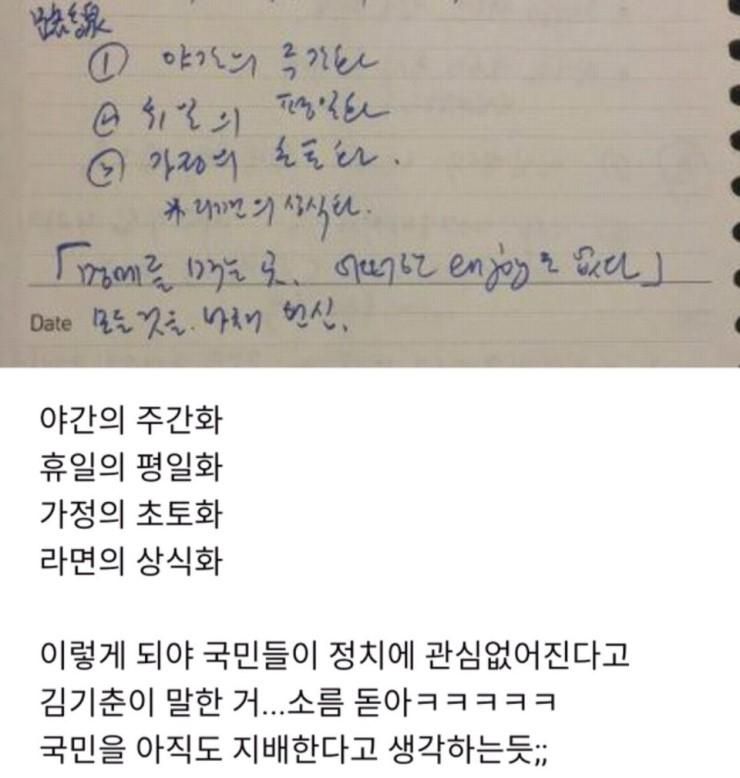 ① 야간의 주간화
② 휴일의 평일화
③ 가정의 초토화.
* 라면의 상식화.
「명예를 먹는 곳. 어떠한 enjoy도 없다」
Date 모든 것을. 바쳐 헌신.
야간의 주간화
휴일의 평일화
가정의 초토화
라면의 상식화
이렇게 되야 국민들이 정치에 관심없어진다고
김기춘이 말한 거...소름 돋아ㅋㅋㅋㅋㅋ
국민을 아직도 지배한다고 생각하는듯;;